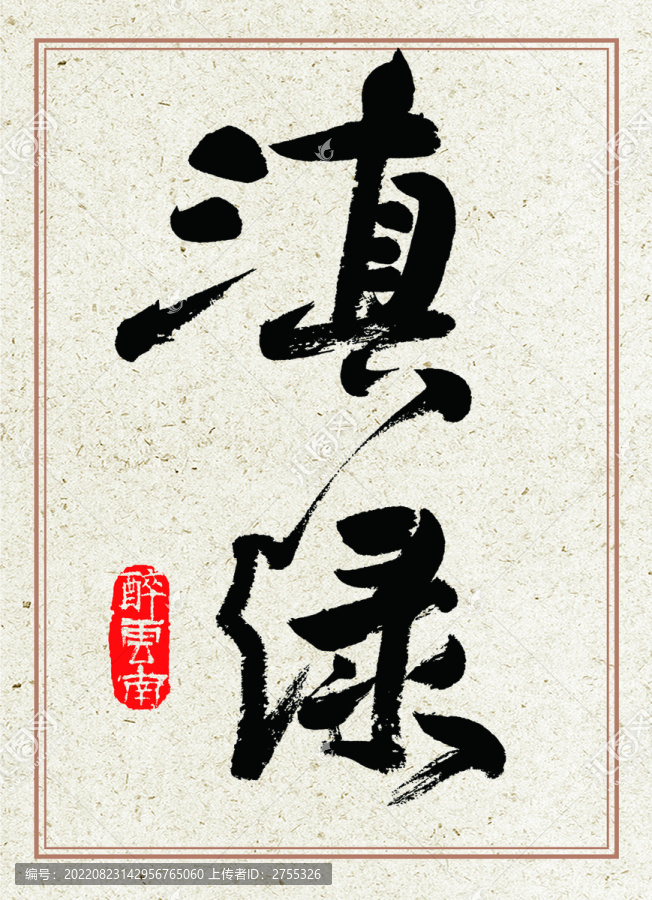 滇
绿
醉雲南
编号：20220823142956765060 上传者ID：2755326